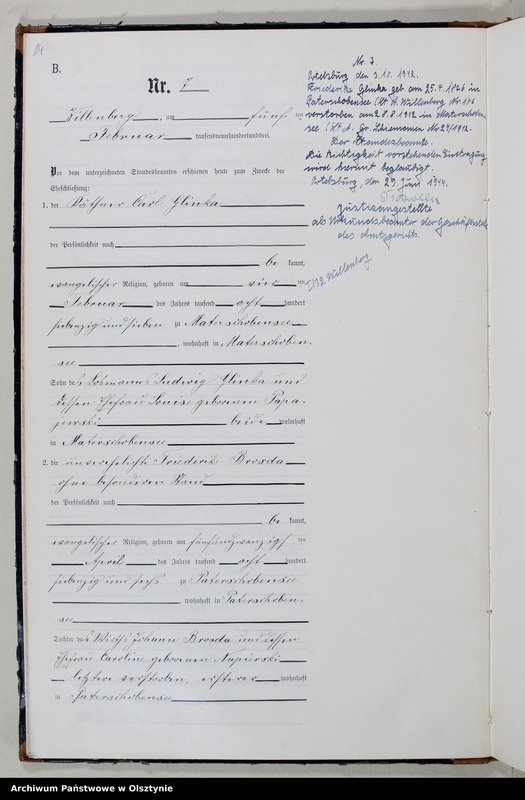 14
B.
Nr. 7
Willenberg, am fünf ten
Februar tausendneunhundertunddrei.
Vor dem unterzeichneten Standesbeamten erschienen heute zum Zweck der
Eheschließung:
1. der Käthner Carl Glinka
der Persönlichkeit nach
be kannt,
evangelischer Religion, geboren am vier ten
Februar des Jahres tausend acht hundert
siebenzig und sieben zu Materschobensee
, wohnhaft in Materschoben-
see
Sohn des Losmanns Ludwig Glinka und
dessen Ehefrau Louise geborenen Papa-
jewski beide wohnhaft
in Materschobensee
2. die unverehelichte Friederike Brosda
ohne besonderen Stand
der Persönlichkeit nach
be kannt,
evangelischer Religion, geboren am fünfundzwanzigs ten
April des Jahres tausend acht hundert
siebenzig und sechs zu Paterschobensee
, wohnhaft in Paterschoben-
see
Tochter des Wirths Johann Brosda und dessen
Ehefrau Caroline geborenen Napierski
letztere verstorben, ersterer wohnhaft
in Paterschobensee
Nr. 7.
Ortelsburg, den 3.10.1942.
Friederike Glinka geb. am 25.4.1876 in
Paterschobensee (St. A. Willenberg Nr.
verstorben am 2.8.1912 in Materschoben-
see (St. A. Gr. Schiemanen No 27/1912.
Der Standesbeamte.
Die Richtigkeit vorstehender Eintragung
wird hiermit beglaubigt.
Ortelsburg, den 29. Juni 1944.
Justizangestellte
als Urkundsbeamter der Geschäftsstelle
des Amtsgerichts.
Willenberg
Archiwum Państwowe w Olsztynie